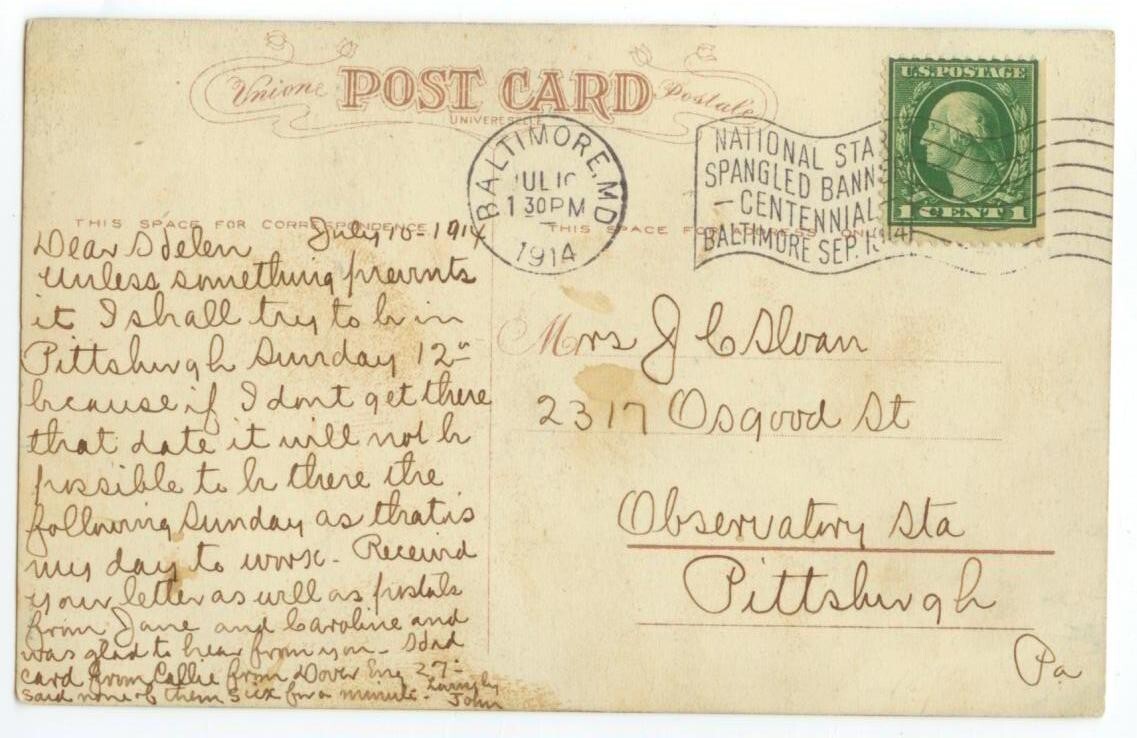 Unione POST CARD Postale
UNIVERESELLE
BALTIMORE, MD
JUL 10
1 30 PM
1914
NATIONAL STA
SPANGLED BANN
CENTENNIAL
BALTIMORE SEP. 1914
U.S. POSTAGE
1 CENT 1
THIS SPACE FOR CORRESPONDENCE
THIS SPACE FOR ADDRESS ONLY
July 10-1914
Dear Helen
Unless something prevents
it I shall try to be in
Pittsburgh Sunday 12"
because if I dont get there
that date it will not be
possible to be there the
following Sunday as that is
my day to work - Received
your letter as well as postals
from Jane and Caroline and
was glad to hear from you - Had
card from Callie from Dover Eng 27-
said none of them sick for a minute - Lovingly
John
Mrs J C Sloan
2317 Osgood St
Observatory Sta
Pittsburgh
Pa